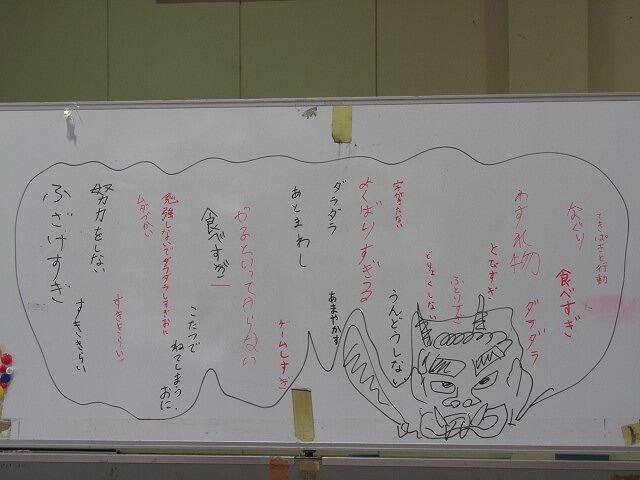 てきぱきと行動
なぐり
食べすぎ
わすれ物
ダラダラ
とびすぎ
ふとりすぎ
どりょくしない
字がきたない
うんどうしない
よくばりすぎる
ダラダラ
あまやかす
あとまわし
ゲームしすぎ
やるといってやらない
食べすぎ
こたつで
ねてしまう
おに
勉強しないでダラダラしすぎおに
ムダづかい
すききらい
努力をしない
すききらい
ふざけすぎ